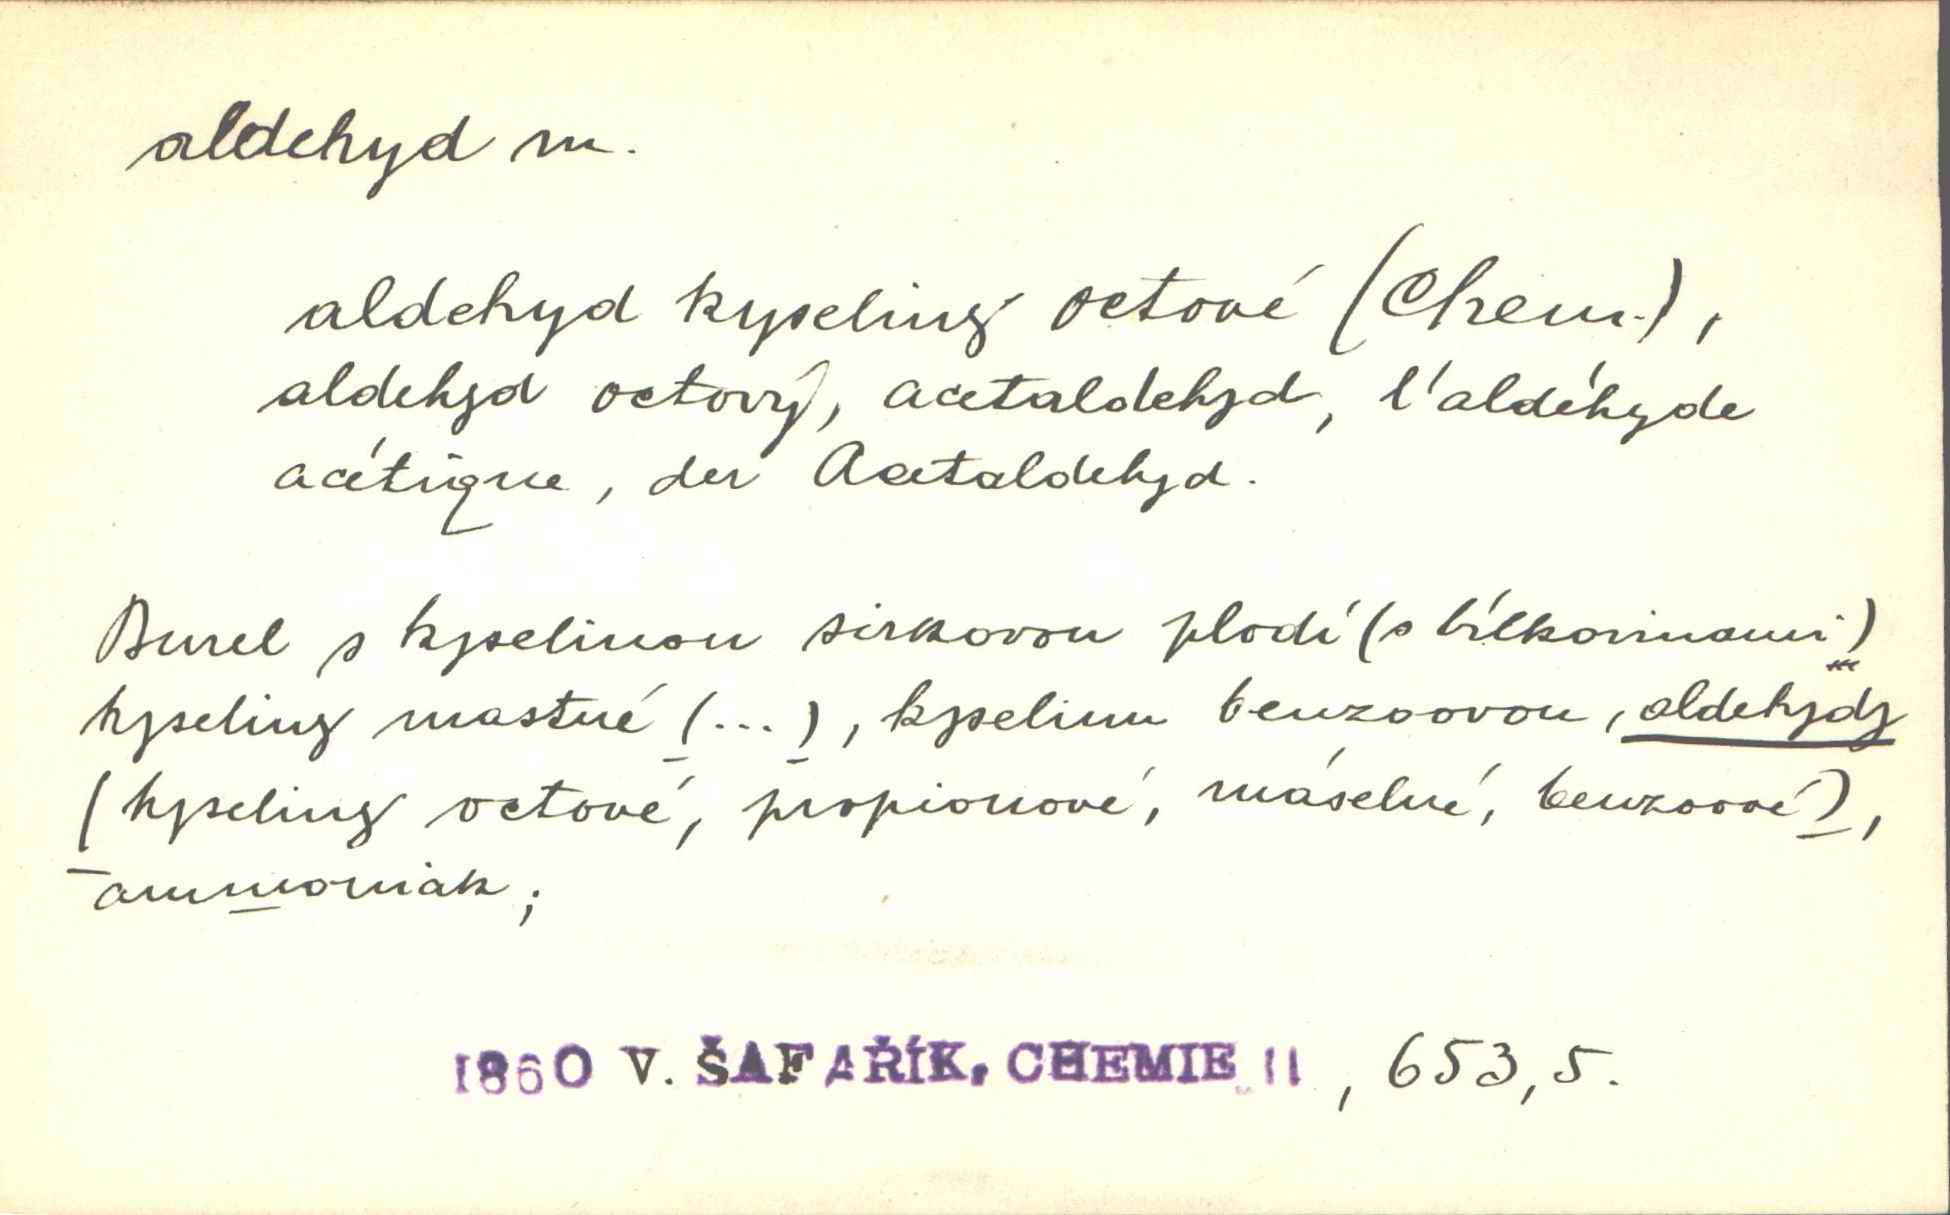 aldehyd m.
aldehyd kyseliny octové (Chem.),
aldehyd octový, acetaldehyd, l'aldéhyde
acétique, der Acetaldehyd.
Burel s kyselinou sirkovou plodí (s bílkovinami)
kyseliny mastné (...), kyselinu benzoovou, aldehydy
(kyseliny octové, propionové, máselné, benzoové),
ammoniak;
1860 V. ŠAFAŘÍK, CHEMIE II, 653,5.